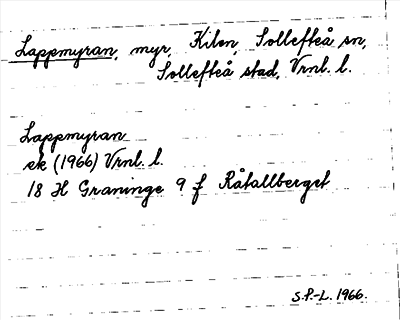 Lappmyran, myr, Kilen, Sollefteå sn,
Sollefteå stad, Vrnl. l.
Lappmyran
ek (1966) Vrnl. l.
18 H Graninge 9 f Råtallberget
S.P.-L. 1966.